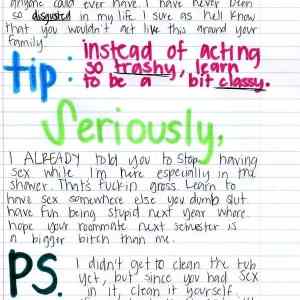 anyone could ever have. I have never been
so disgusted in my life I sure as hell know
that you wouldn't act like this around your
family
tip:
instead of acting
so trashy, learn
to be a bit classy.
Seriously,
I ALREADY told you to stop having
sex while I'm here especially in the
shower. That's fuckin gross. Learn to
have sex somewhere else you dumb slut
have fun being stupid next year where
hope your roommate next semester is
a bigger bitch than me.
PS.
I didn't get to clean the tub
yet, but since you had sex
in it, clean it yourself.